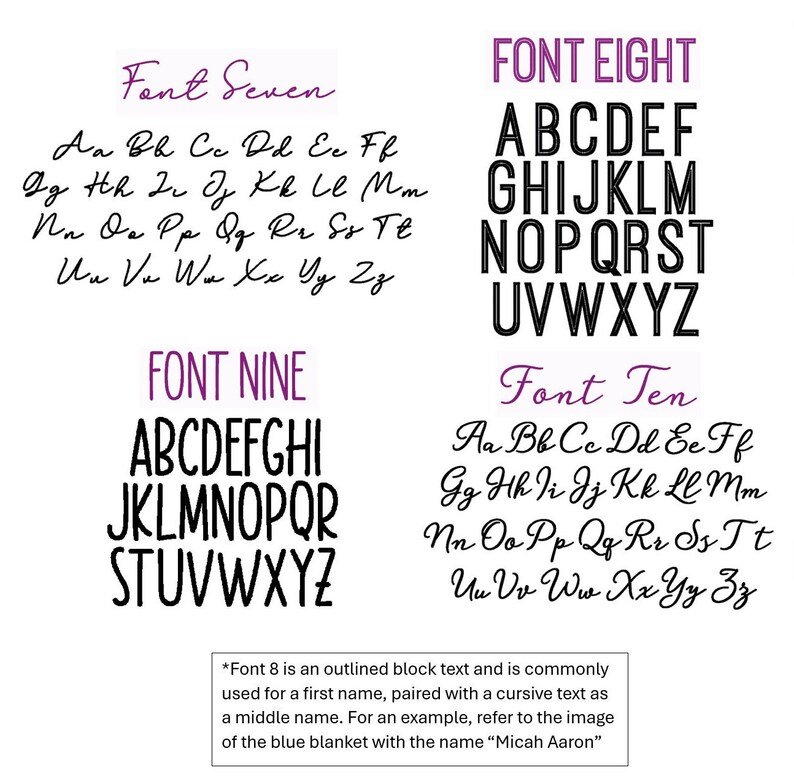 Font Seven
Aa Bb Cc Dd Ee Ff
Gg Hh Ii Jj Kk Ll Mm
Nn Oo Pp Qq Rr Ss Tt
Uu Vv Ww Xx Yy Zz
FONT EIGHT
ABCDEF
GHIJKLM
NOPQRST
UVWXYZ
FONT NINE
ABCDEFGHI
JKLMNOPQR
STUVWXYZ
Font Ten
Aa Bb Cc Dd Ee Ff
Gg Hh Ii Jj Kk Ll Mm
Nn Oo Pp Qq Rr Ss Tt
Uu Vv Ww Xx Yy Zz
*Font 8 is an outlined block text and is commonly
used for a first name, paired with a cursive text as
a middle name. For an example, refer to the image
of the blue blanket with the name “Micah Aaron”